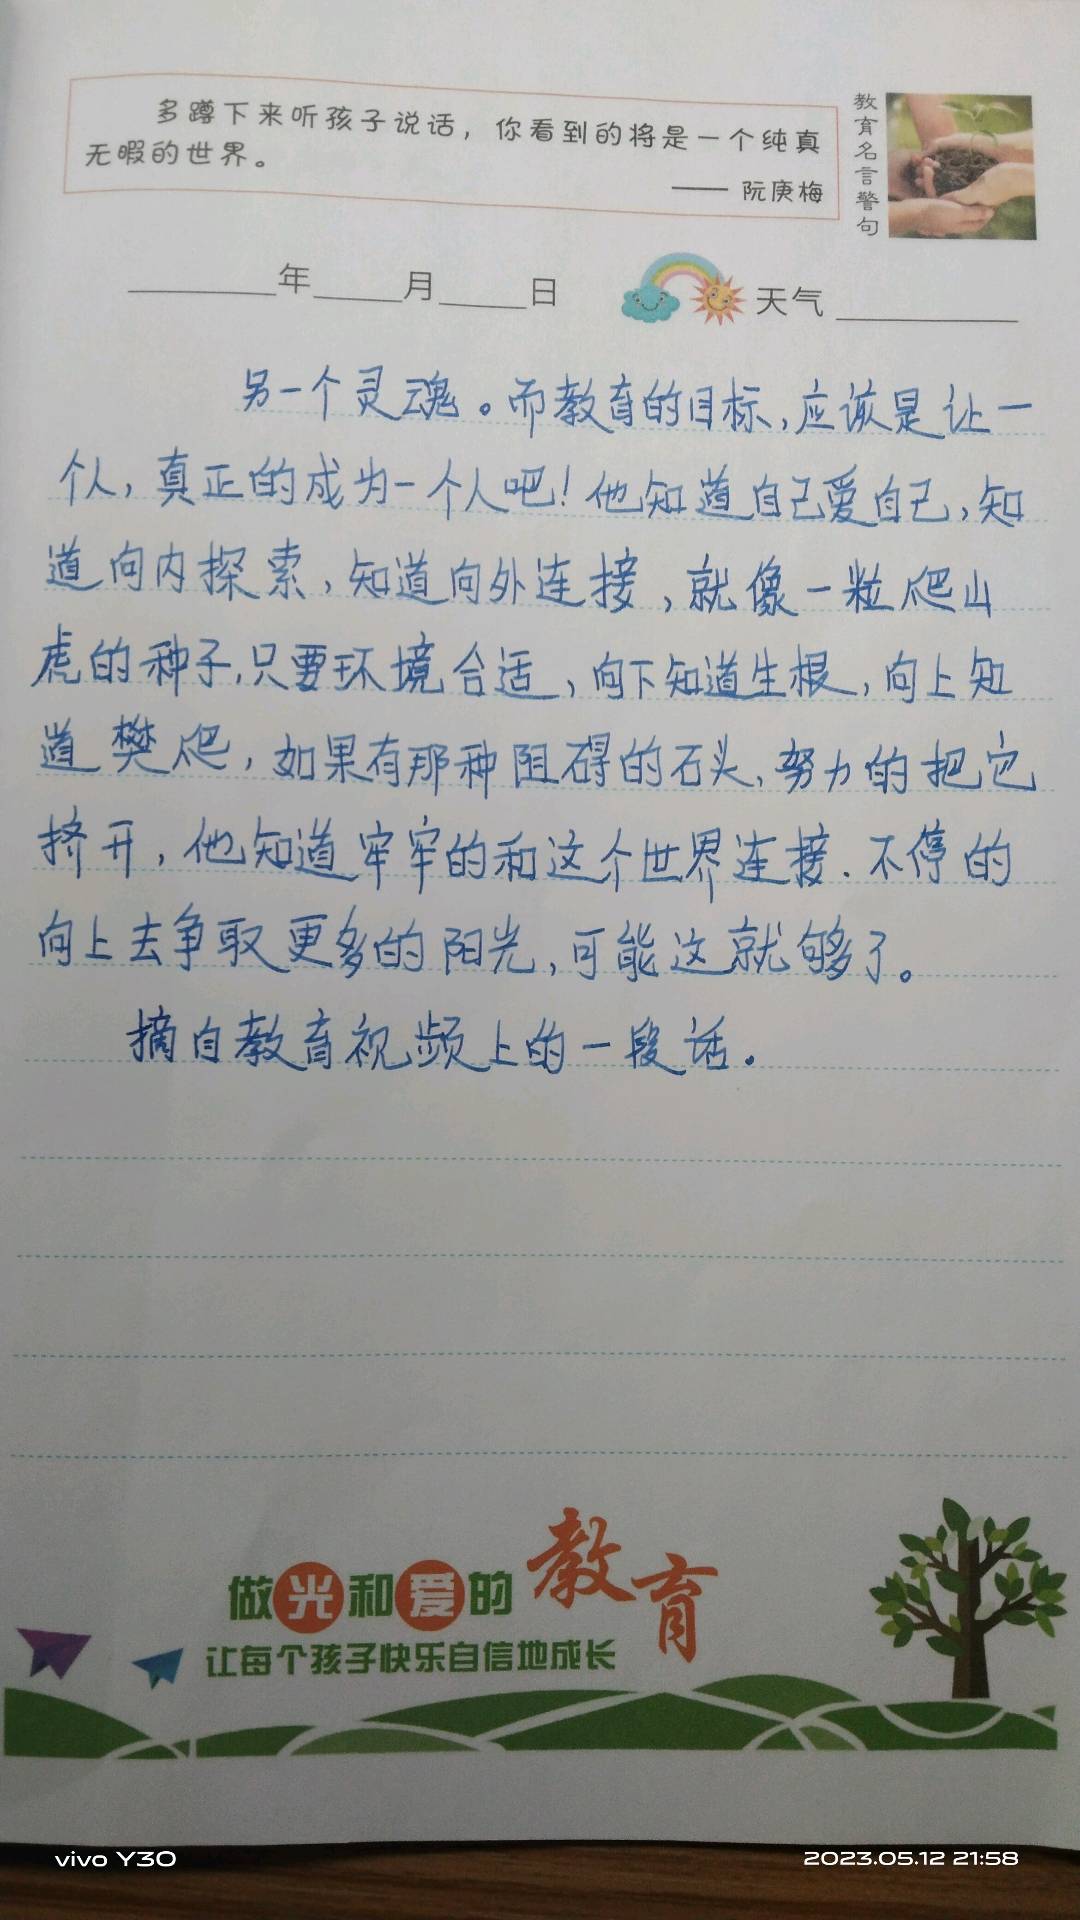 多蹲下来听孩子说话，你看到的将是一个纯真
无暇的世界。
—— 阮庚梅
教育名言警句
____年____月____日 天气____
另一个灵魂。而教育的目标,应该是让一
个人,真正的成为一个人吧!他知道自己爱自己,知
道向内探索,知道向外连接,就像一粒爬山
虎的种子,只要环境合适,向下知道生根,向上知
道樊爬,如果有那种阻碍的石头,努力的把它
挤开,他知道牢牢的和这个世界连接.不停的
向上去争取更多的阳光,可能这就够了。
摘自教育视频上的一段话.
做光和爱的教育
让每个孩子快乐自信地成长
vivo Y30
2023.05.12 21:58